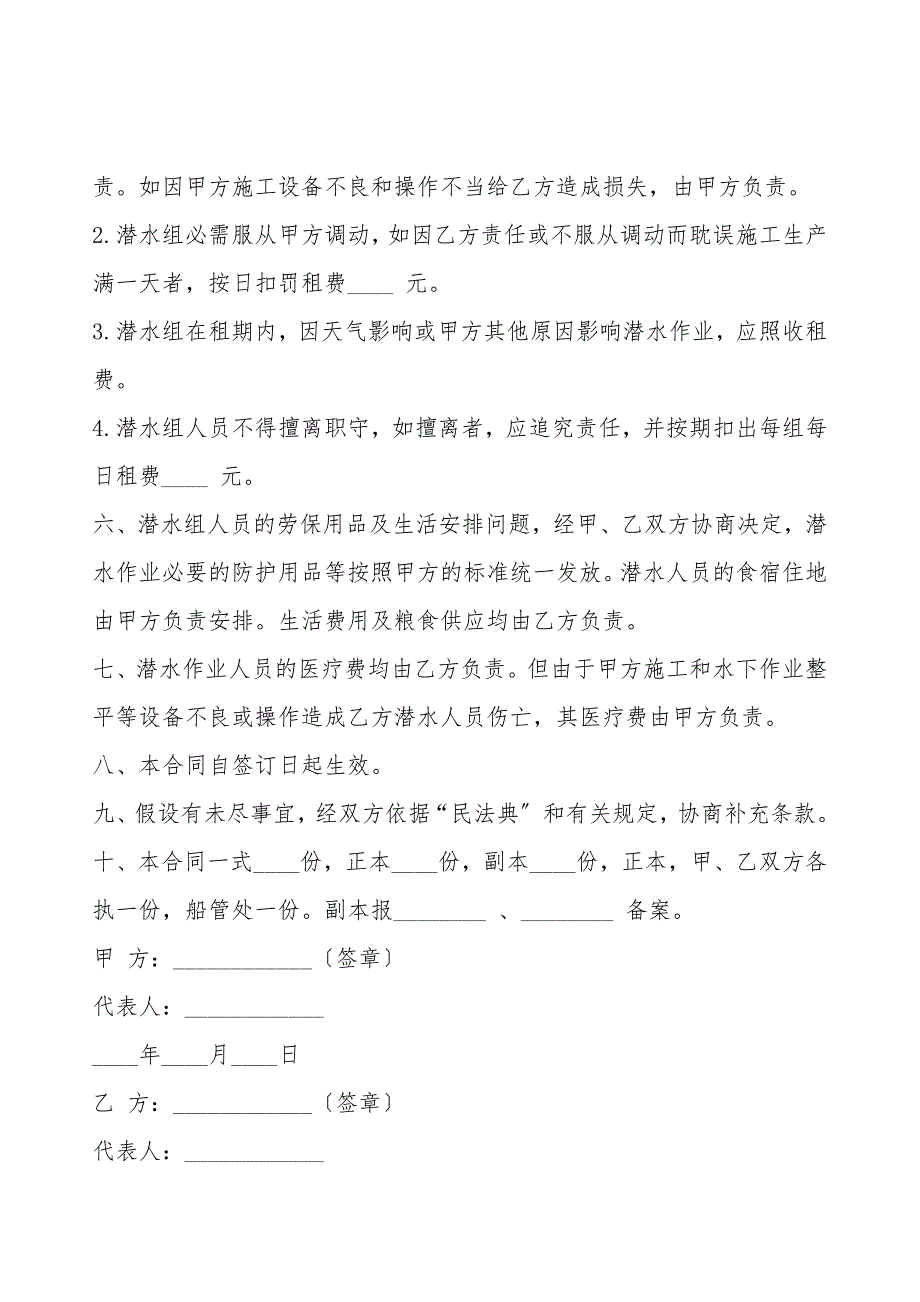 责。如因甲方施工设备不良和操作不当给乙方造成损失，由甲方负责。
2.潜水组必需服从甲方调动，如因乙方责任或不服从调动而耽误施工生产
满一天者，按日扣罚租费____ 元。
3.潜水组在租期内，因天气影响或甲方其他原因影响潜水作业，应照收租
费。
4.潜水组人员不得擅离职守，如擅离者，应追究责任，并按期扣出每组每
日租费____ 元。
六、潜水组人员的劳保用品及生活安排问题，经甲、乙双方协商决定，潜
水作业必要的防护用品等按照甲方的标准统一发放。潜水人员的食宿住地
由甲方负责安排。生活费用及粮食供应均由乙方负责。
七、潜水作业人员的医疗费均由乙方负责。但由于甲方施工和水下作业整
平等设备不良或操作造成乙方潜水人员伤亡，其医疗费由甲方负责。
八、本合同自签订日起生效。
九、假设有未尽事宜，经双方依据“民法典〞和有关规定，协商补充条款。
十、本合同一式____份，正本____份，副本____份，正本，甲、乙双方各
执一份，船管处一份。副本报________ 、________ 备案。
甲 方：____________〔签章〕
代表人：____________
____年____月____日
乙 方：____________〔签章〕
代表人：____________